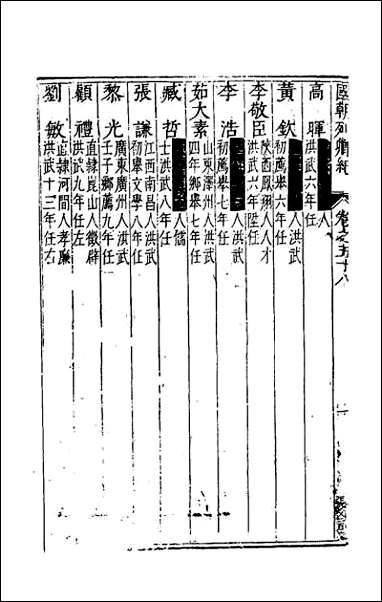 國朝列卿紀 卷之五十八
高暉 人
洪武六年任
黄欽 人洪武
初薦舉六年任
李敬臣 陜西鳳翔人人才
洪武六年陞任
李浩 人洪武
初薦舉七年任
茹大素 山東澤州人洪武
四年鄉舉七年任
臧哲 人儒
士洪武八年任
張謙 江西南昌人洪武
初舉文學八年任
黎光 廣東廣州人洪武
壬子鄉薦九年任
顧禮 直隷崑山人徵辟
洪武九年任左
劉敏 直隷河間人孝廉
洪武十三年任右